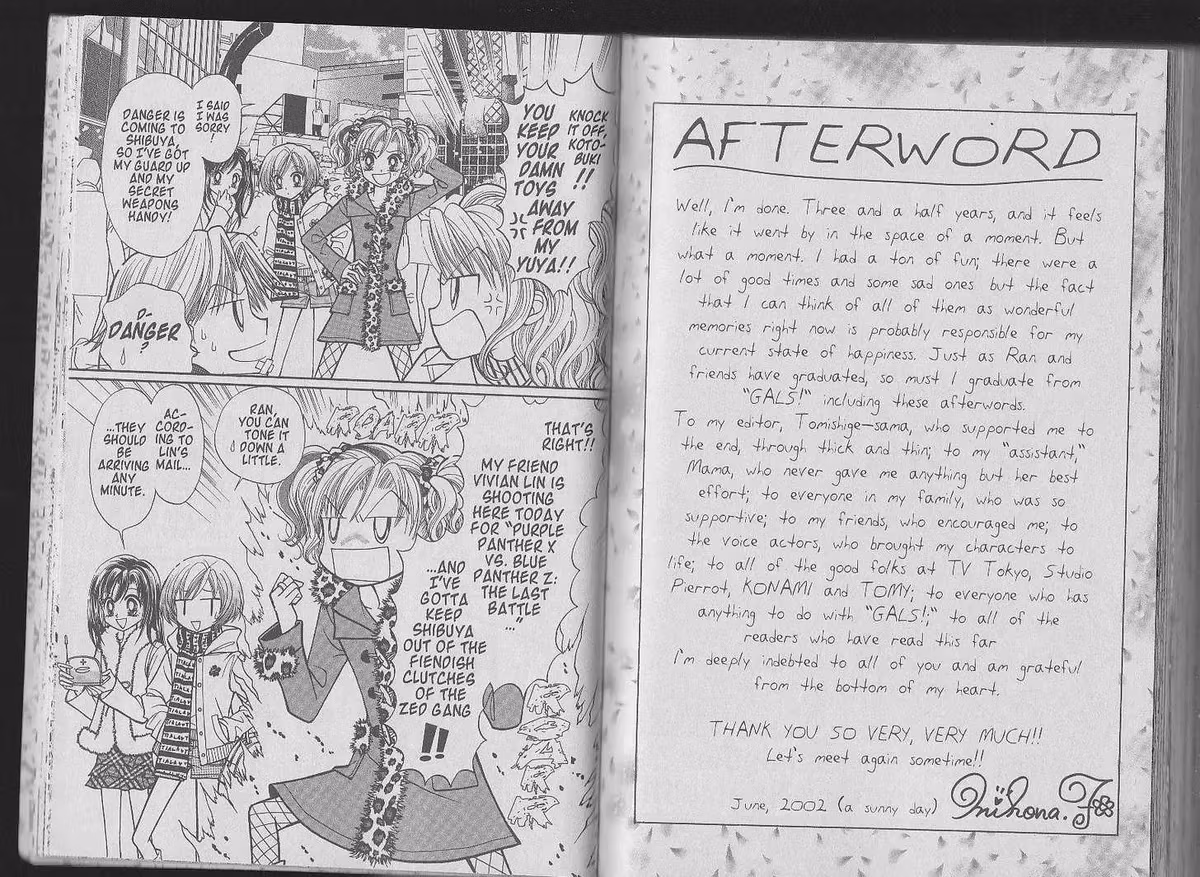 I SAID
I WAS
SORRY
!
DANGER IS
COMING TO
SHIBUYA,
SO I'VE GOT
MY GUARD UP
AND MY
SECRET
WEAPONS
HANDY!
KNOCK
IT OFF,
KOTO-
BUKI
!!
YOU
KEEP
YOUR
DAMN
TOYS
AWAY
FROM
MY
YUYA!!
D-
DANGER
?
RAN,
YOU CAN
TONE IT
DOWN A
LITTLE.
AC-
CORD-
ING TO
LIN'S
MAIL...
...THEY
SHOULD
BE
ARRIVING
ANY
MINUTE.
THAT'S
RIGHT!!
MY FRIEND
VIVIAN LIN IS
SHOOTING
HERE TODAY
FOR "PURPLE
PANTHER X
VS. BLUE
PANTHER Z:
THE LAST
BATTLE
..."
...AND
I'VE
GOTTA
KEEP
SHIBUYA
OUT OF THE
FIENDISH
CLUTCHES
OF THE
ZED GANG
!!
AFTERWORD
Well, I'm done. Three and a half years, and it feels
like it went by in the space of a moment. But
what a moment. I had a ton of fun; there were a
lot of good times and some sad ones but the fact
that I can think of all of them as wonderful
memories right now is probably responsible for my
current state of happiness. Just as Ran and
friends have graduated, so must I graduate from
"GALS!" including these afterwords.
To my editor, Tomishige-sama, who supported me to
the end, through thick and thin; to my "assistant,"
Mama, who never gave me anything but her best
effort; to everyone in my family, who was so
supportive; to my friends, who encouraged me; to
the voice actors, who brought my characters to
life; to all of the good folks at TV Tokyo, Studio
Pierrot, KONAMI and TOMY; to everyone who has
anything to do with "GALS!;" to all of the
readers who have read this far
I'm deeply indebted to all of you and am grateful
from the bottom of my heart.
THANK YOU SO VERY, VERY MUCH!!
Let's meet again sometime!!
June, 2002 (a sunny day)
Mihona.F